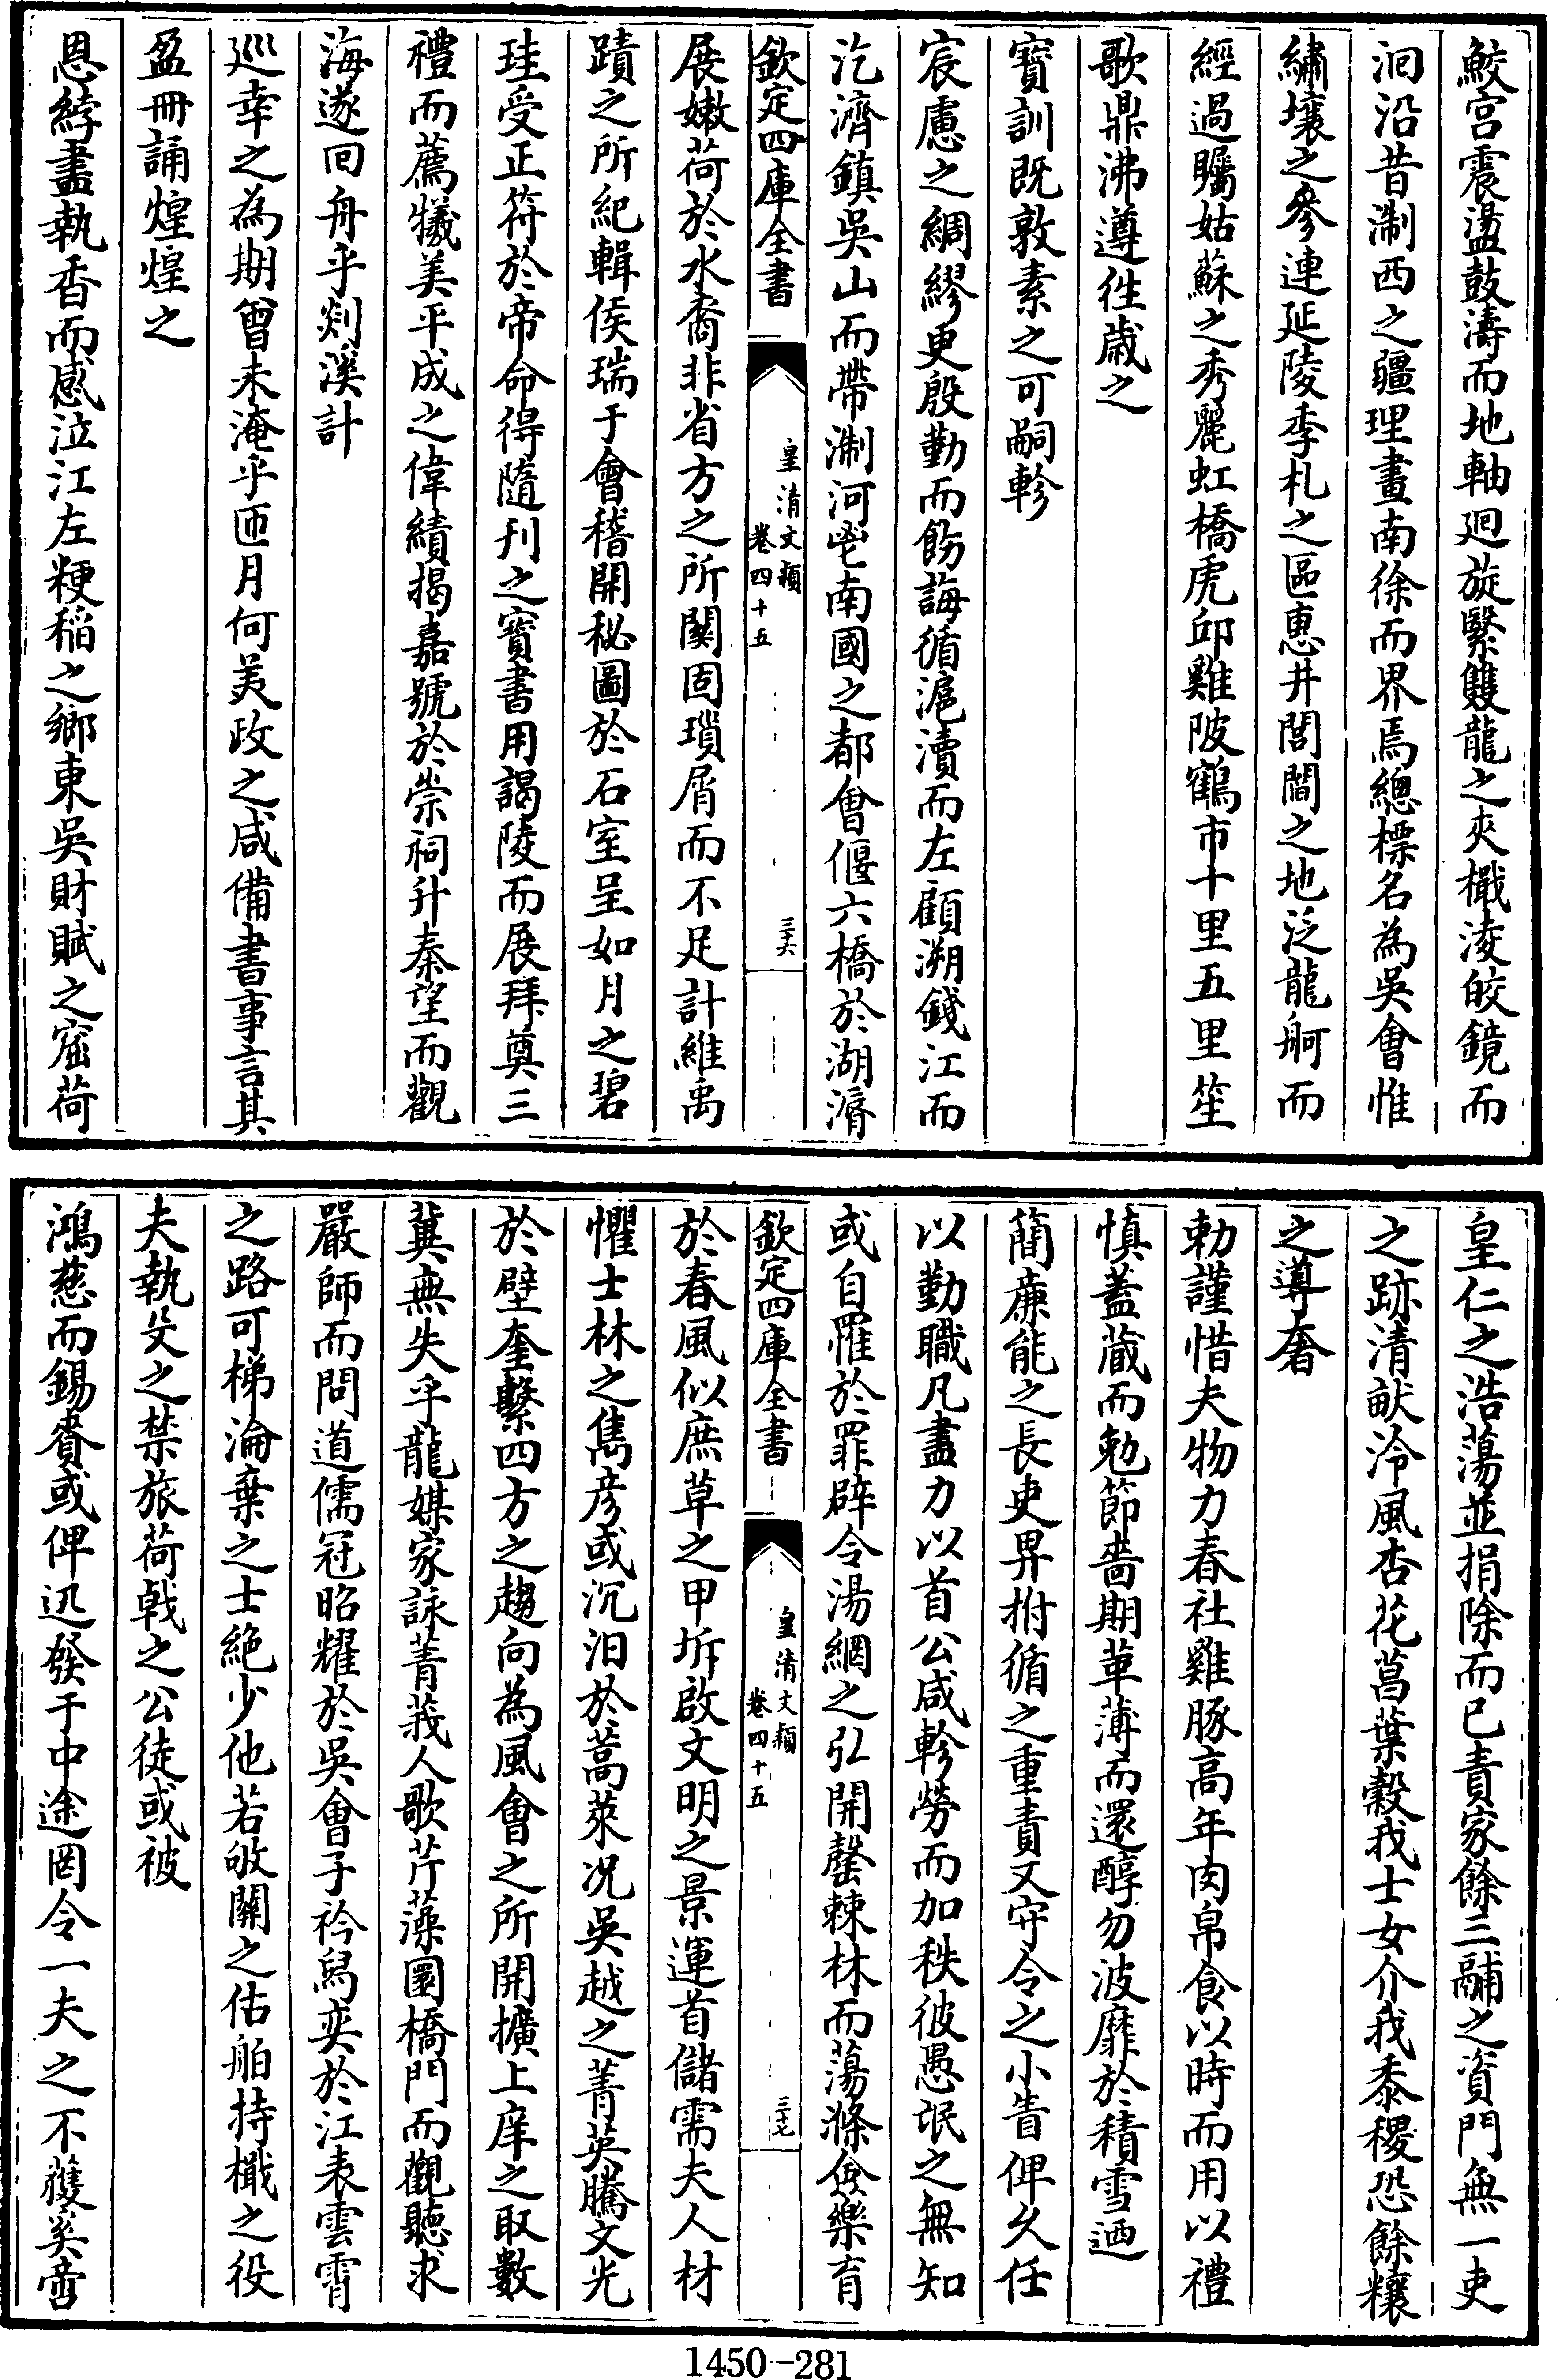 鮫宫震盪鼓濤而地軸廻旋繄雙龍之夾檝淩皎鏡而
洄沿昔淛西之疆理畫南徐而界焉總標名為吳會惟
繡壤之參連延陵季札之區惠井閭閻之地泛龍舸而
經過矚姑蘇之秀麗虹橋虎邱雞陂鶴市十里五里笙
歌鼎沸遵徃歳之
寳訓既敦素之可嗣軫
宸慮之綢繆更殷勤而飭誨循滬瀆而左顧溯錢江而
汔濟鎮吳山而帶淛河鬯南國之都會偃六橋於湖漘
欽定四庫全書
皇清文穎
卷四十五
三十六
展嫩荷於水裔非省方之所闗固瑣屑而不足計維禹
蹟之所紀輯侯瑞于會稽開秘圖於石室呈如月之碧
珪受正符於帝命得隨刊之寳書用謁陵而展拜奠三
禮而薦犧美平成之偉績揭嘉號於崇祠升秦望而觀
海遂回舟乎剡溪計
廵幸之為期曾未淹乎匝月何美政之咸備書事言其
盈冊誦煌煌之
恩綍盡執香而感泣江左粳稻之鄉東吳財賦之窟荷
皇仁之浩蕩並捐除而已責家餘三鬴之資門無一吏
之跡清畎泠風杏花菖葉穀我士女介我黍稷恐餘糧
之導奢
勅謹惜夫物力春社雞豚高年肉帛食以時而用以禮
慎蓋藏而勉節嗇期革薄而還醇勿波靡於積雪廼
簡亷能之長吏畀拊循之重責又守令之小眚俾久任
以勤職凡盡力以首公咸軫勞而加秩彼愚氓之無知
或自罹於罪辟令湯網之弘開罄棘林而蕩滌僉樂育
欽定四庫全書
皇清文穎
卷四十五
三十七
於春風似庶草之甲坼啟文明之景運首儲需夫人材
懼士林之雋彦或沉汨於蒿萊况吳越之菁英騰文光
於壁奎繫四方之趨向為風會之所開擴上庠之取數
冀無失乎龍媒家詠菁莪人歌芹藻圜橋門而觀聽求
嚴師而問道儒冠昭耀於吳會子衿舃奕於江表雲霄
之路可梯淪棄之士絶少他若敂關之估舶持檝之役
夫執殳之禁旅荷戟之公徒或被
鴻慈而錫賚或俾迅發于中途罔令一夫之不獲奚啻
1450-281